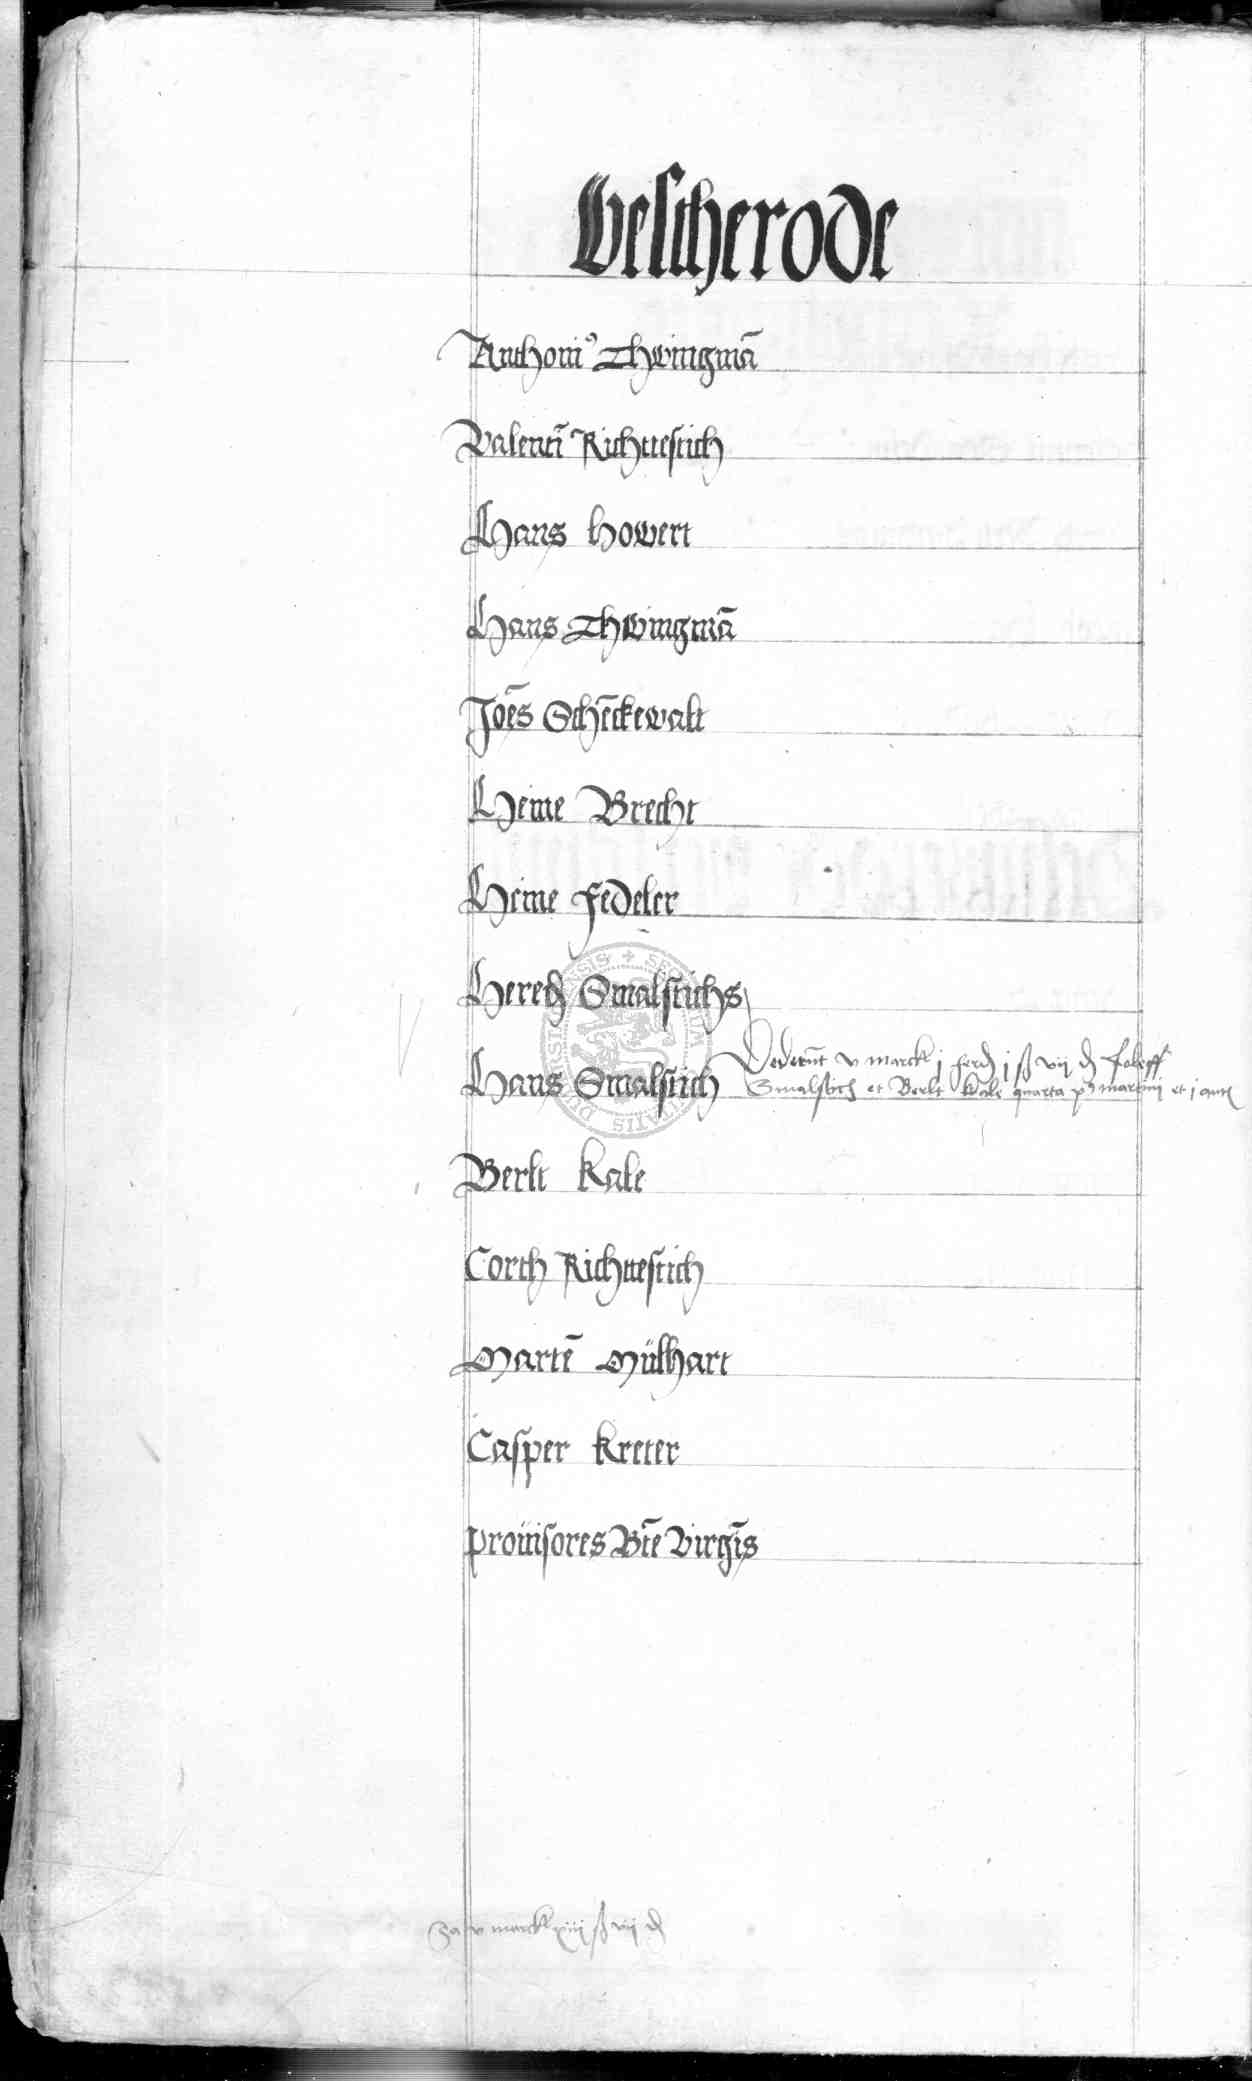 Gelscherode
Anthoni⁹ Thwingmā
Valentī Richttestich
Hans Howert
Hans Thwingmā
Joēs Schēckewalt
Heine Brecht
Heine Fedeler
Heredꝫ Smalstichs
Hans Smalstich
Dederūt v marck j ferdꝫ j ß vij ₰
Smalstich et Berlt Kale quarta pꝰ martini et j
Berlt Kale
Corth Richttestich
Martē Mülhart
Casper Kreter
Prouisores Btē Virgīs
Sa v marck xiij ß vij ₰